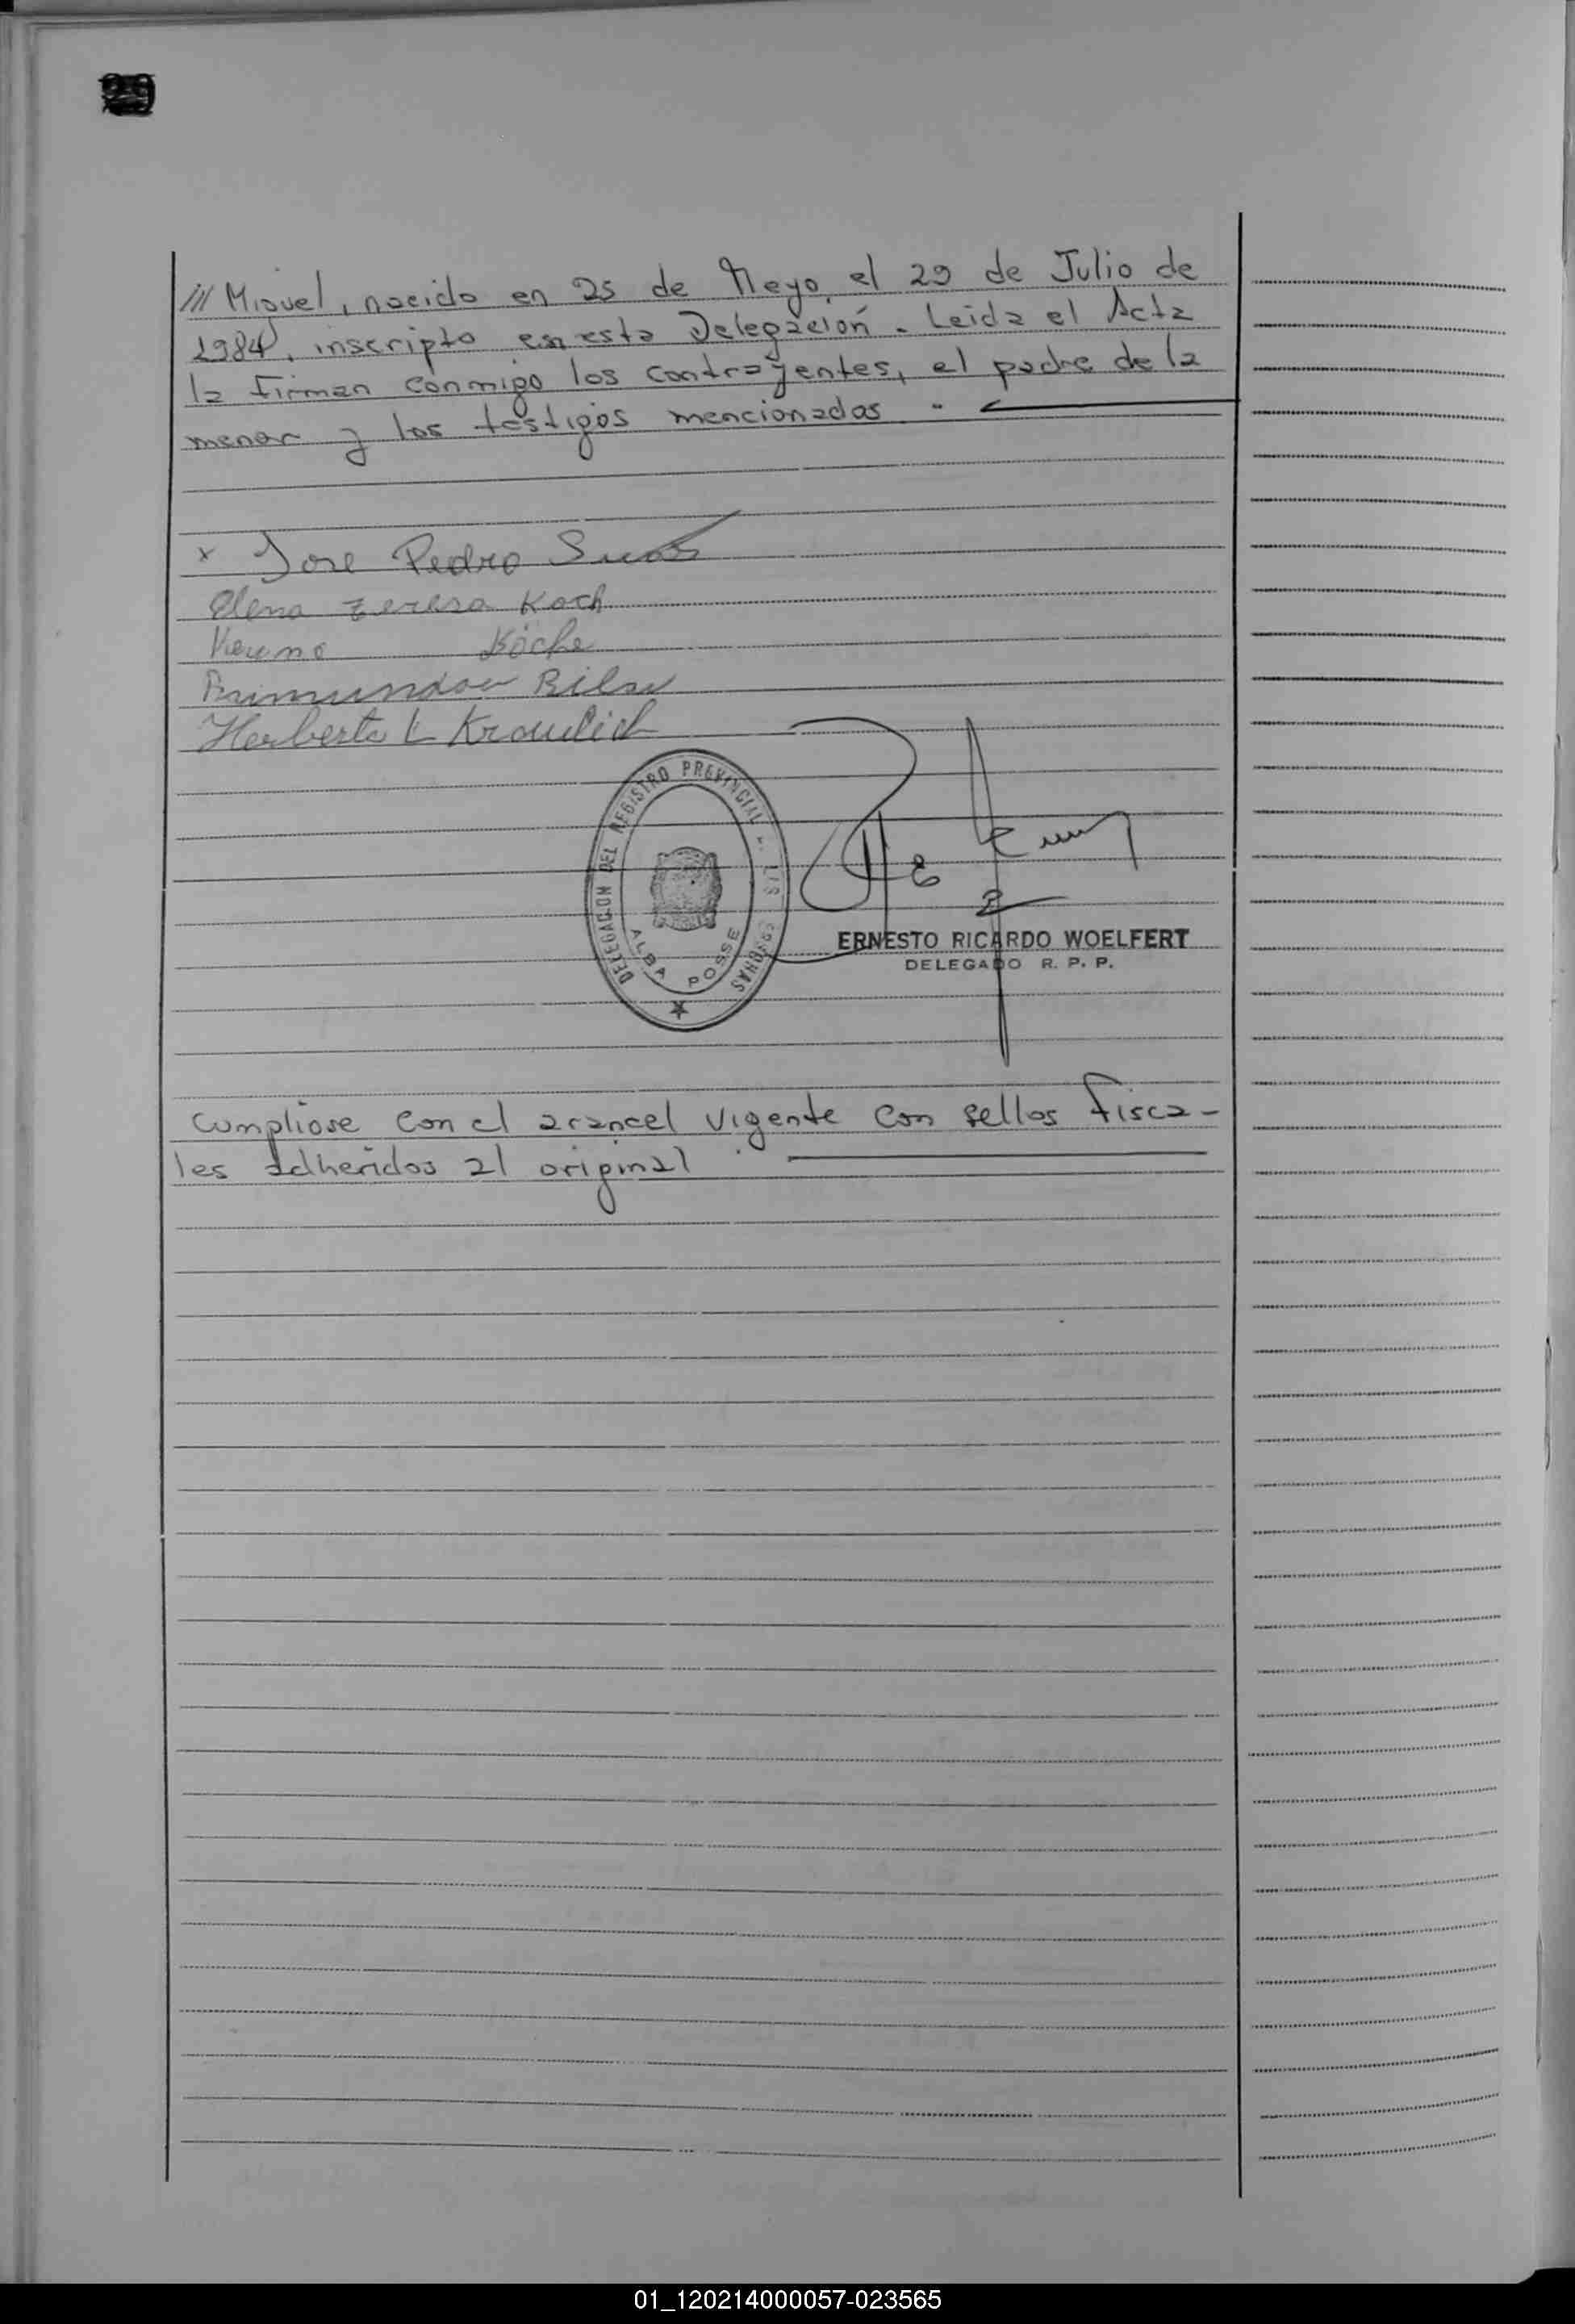 /// Miguel, nacido en 25 de Mayo, el 29 de Julio de
1984, inscripto en esta Delegación. Leida el Acta
la firman conmigo los contrayentes, el padre de la
menor y los testigos mencionados.
x Jose Pedro
Elena Teresa Koch
Koche
Raimundo
Herberto L Kraulich
DELEGACION DEL REGISTRO PROVINCIAL DE LAS PERSONAS
ALBA POSSE
ERNESTO RICARDO WOELFERT
DELEGADO R. P. P.
Cumpliose con el arancel vigente con sellos fisca-
les adheridos al original.
01_120214000057-023565